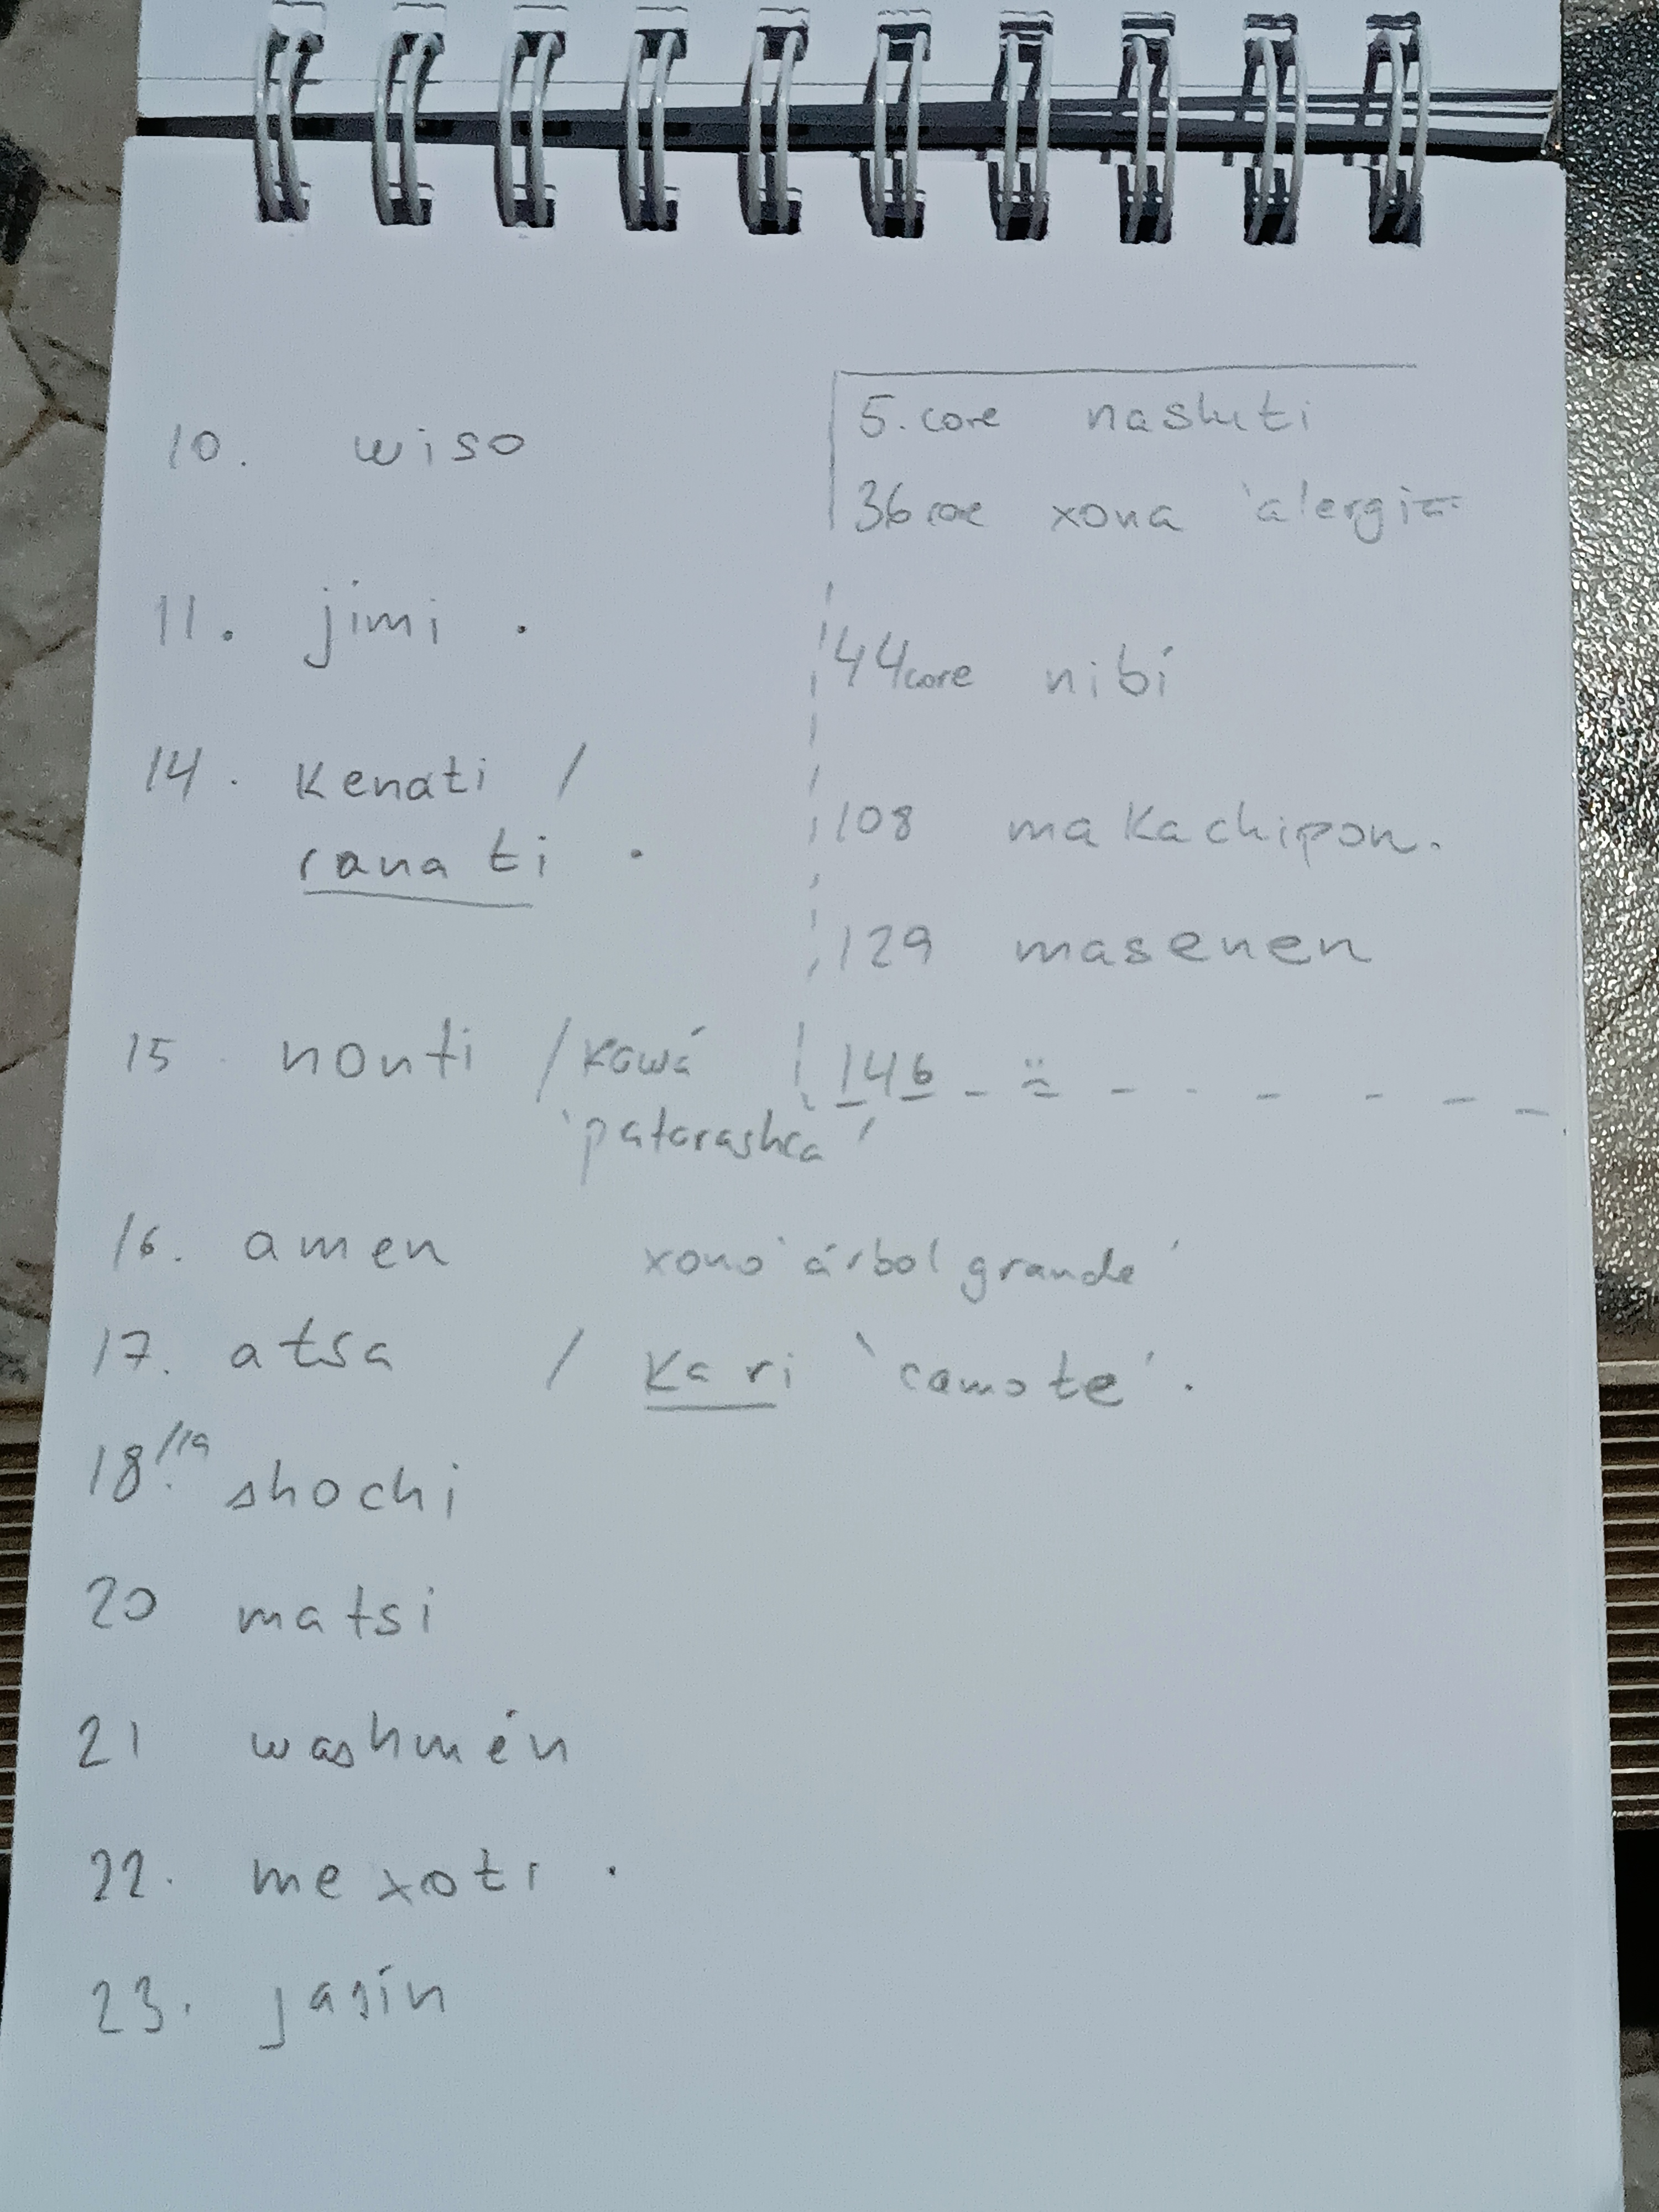 10. wiso
11. jimi .
14. kenati /
ranati .
15 nonti / kawá
'patarashca'
16. amen xono 'árbol grande'
17. atsa / kari 'camote' .
18/19. shochi
20 matsi
21 washmén
22. mexoti .
23. jasín
5. core nashiti
36 core xona 'alergia'
44 core nibí
108 makachipon.
129 masenen
146